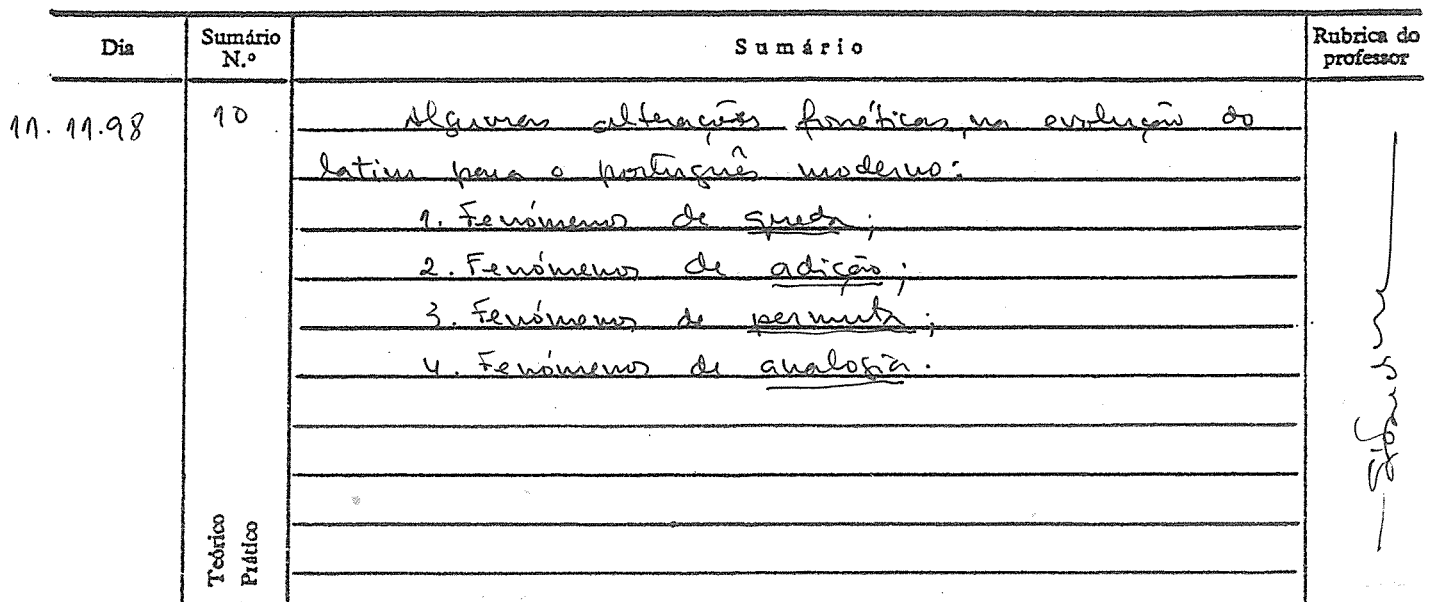 Dia
Sumário N.º
Sumário
Rubrica do professor
11.11.98
10
Algumas alterações fonéticas, na evolução do
latim para o português moderno:
1. Fenómenos de queda;
2. Fenómenos de adição;
3. Fenómenos de permuta;
4. Fenómenos de analogia.
Teórico
Prático